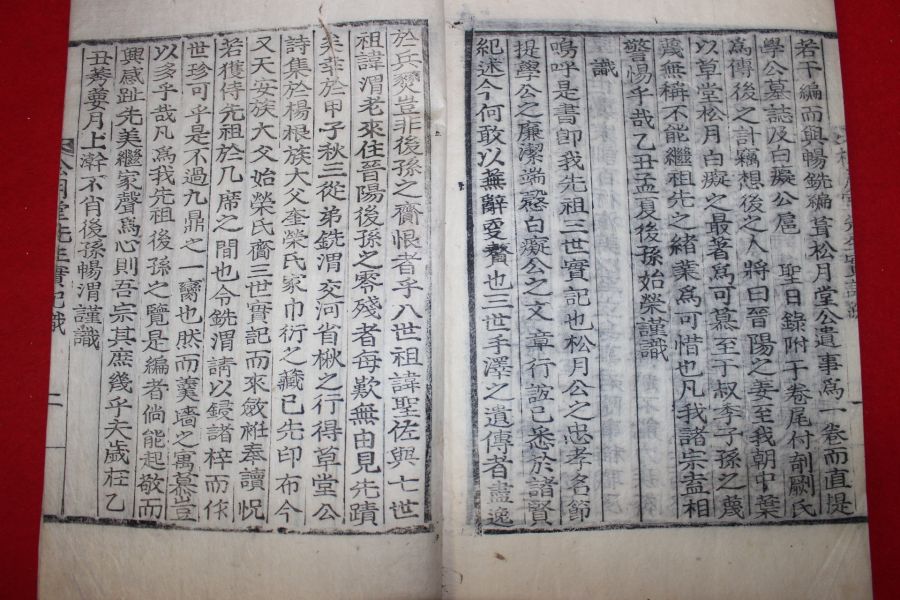 若干編而與暢銑編葺松月堂公遺事為一卷而直提
學公墓誌及白癡公扈聖日錄附于卷尾付剞劂氏
為傳後之計竊想後之人將曰晉陽之姜至我朝中葉
以草堂松月白癡之最著為可慕至于叔季子孫之蔑
蔑無稱不能繼祖先之緒業為可惜也凡我諸宗盍相
警惕乎哉乙丑孟夏後孫始榮謹識
識
嗚呼是書卽我先祖三世實記也松月公之忠孝名節
提學公之廉潔端慤白癡公之文章行誼已悉於諸賢
紀述今何敢以蕪辭更贅也三世手澤之遺傳者盡逸
於兵燹豈非後孫之齎恨者乎八世祖諱聖佐與七世
祖諱渭老來住晉陽後孫之零殘者每歎無由見先蹟
矣幸於甲子秋三從弟銑渭交河省楸之行得草堂公
詩集於楊根族大父奎榮氏家巾衍之藏已先印布今
又天安族大父始榮氏齎三世實記而來斂袵奉讀怳
若獲侍先祖於几席之間也令銑渭請以鋟諸梓而作
世珍可乎是不過九鼎之一臠也然而羹墻之寓慕豈
以多乎哉凡為我先祖後孫之覽是編者倘能起敬而
興感趾先美繼家聲為心則吾宗其庶幾乎夫歲在乙
丑蓂月上澣不肖後孫暢渭謹識
松月堂先生實記識
二